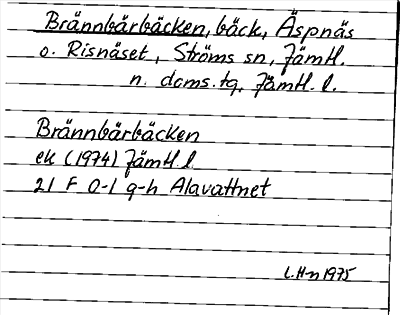 Brännbärbäcken, bäck, Äspnäs
o. Risnäset, Ströms sn, Jämtl.
n. doms.tg, Jämtl. l.
Brännbärbäcken
ek (1974) Jämtl l.
21 F 0-1 g-h Alavattnet
L.H-n 1975